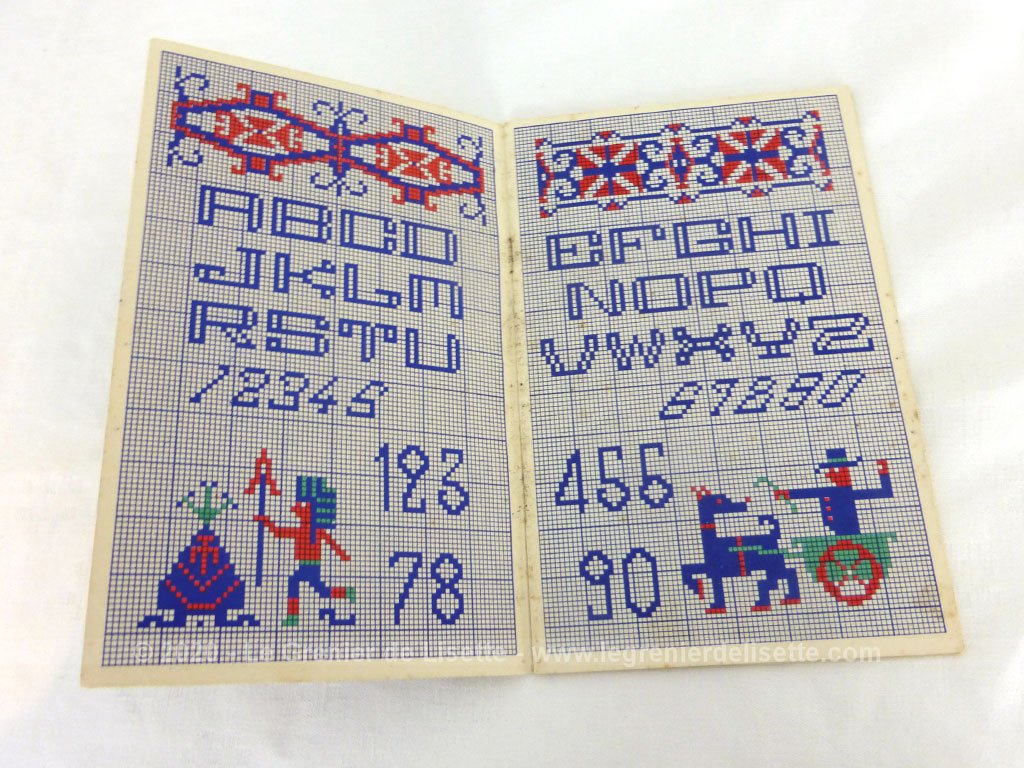 ABCD EFGHI
JKLM NOPQ
RSTU VWXYZ
12345 67890
123 456
78 90
© 2020 - Le Grenier de Lisette - www.legrenierdelisette.com